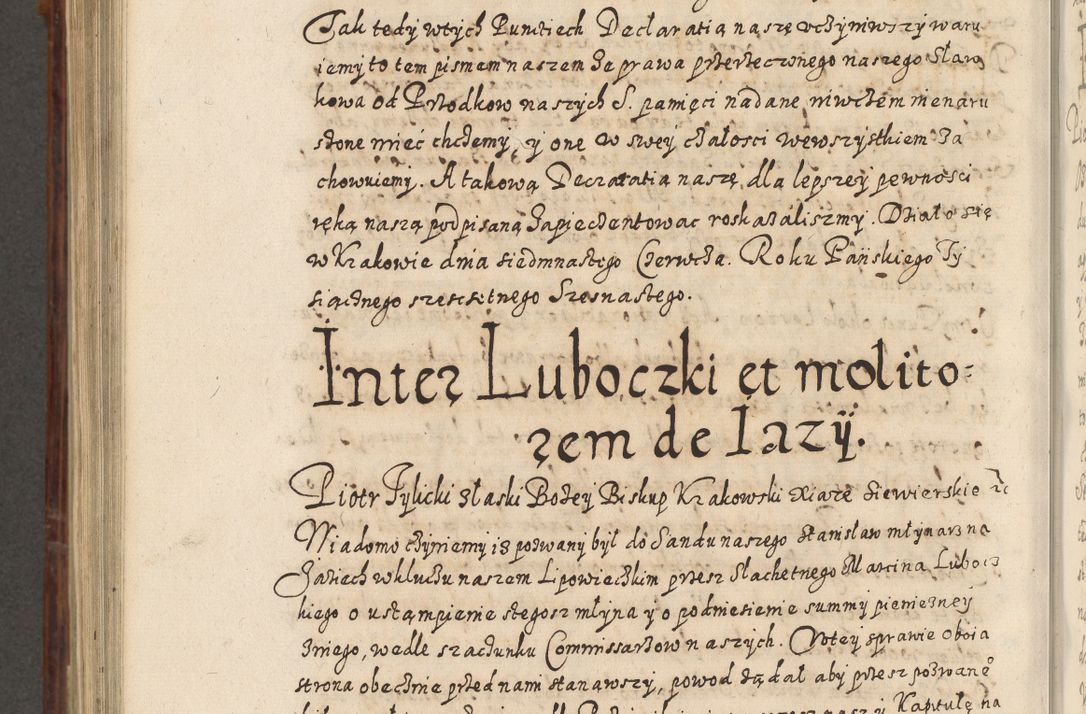 Tak tedy wtych Punctiech Declaratią naszę vczyniwszy waru
iemy to tem pismem naszem że prawa przerzeczonego naszego Sław
kowa od Przodkow naszych S. pamięci nadane niwczem nienaru
szone mieć chczemy, y one w swey czałosci wewszystkiem za
chowuiemy. A takową Decraratią naszę, dla lepszey pewnosci
ręką naszą podpisaną zapieczentowac roskazaliszmy. Działo się
w Krakowie dnia siedmnastego Czerwcza. Roku Pańskiego Ty
siącznego szescsetnego Szesnastego.
Inter Luboczki et molito=
rem de Iazÿ.
Piotr Tylicki złaski Bożey Biskup Krakowski Xiąże Siewierskie
Wiadomo czyniemy is pozwany był do Sandu naszego Stanisław młynarz na
Jaziech wkluczu naszem Lipowieczkim przesz Slachetnego Marcina Luboc
kiego o ustąmpienie stegosz młyna y o podniesienie summy pienieżney
zniego, wedle szacunku Commissarżow naszych. Wtey sprawie oboia
strona obecznie przed nami stanąwszy, powod żądał aby przesz pozwane°
Kapitułę na